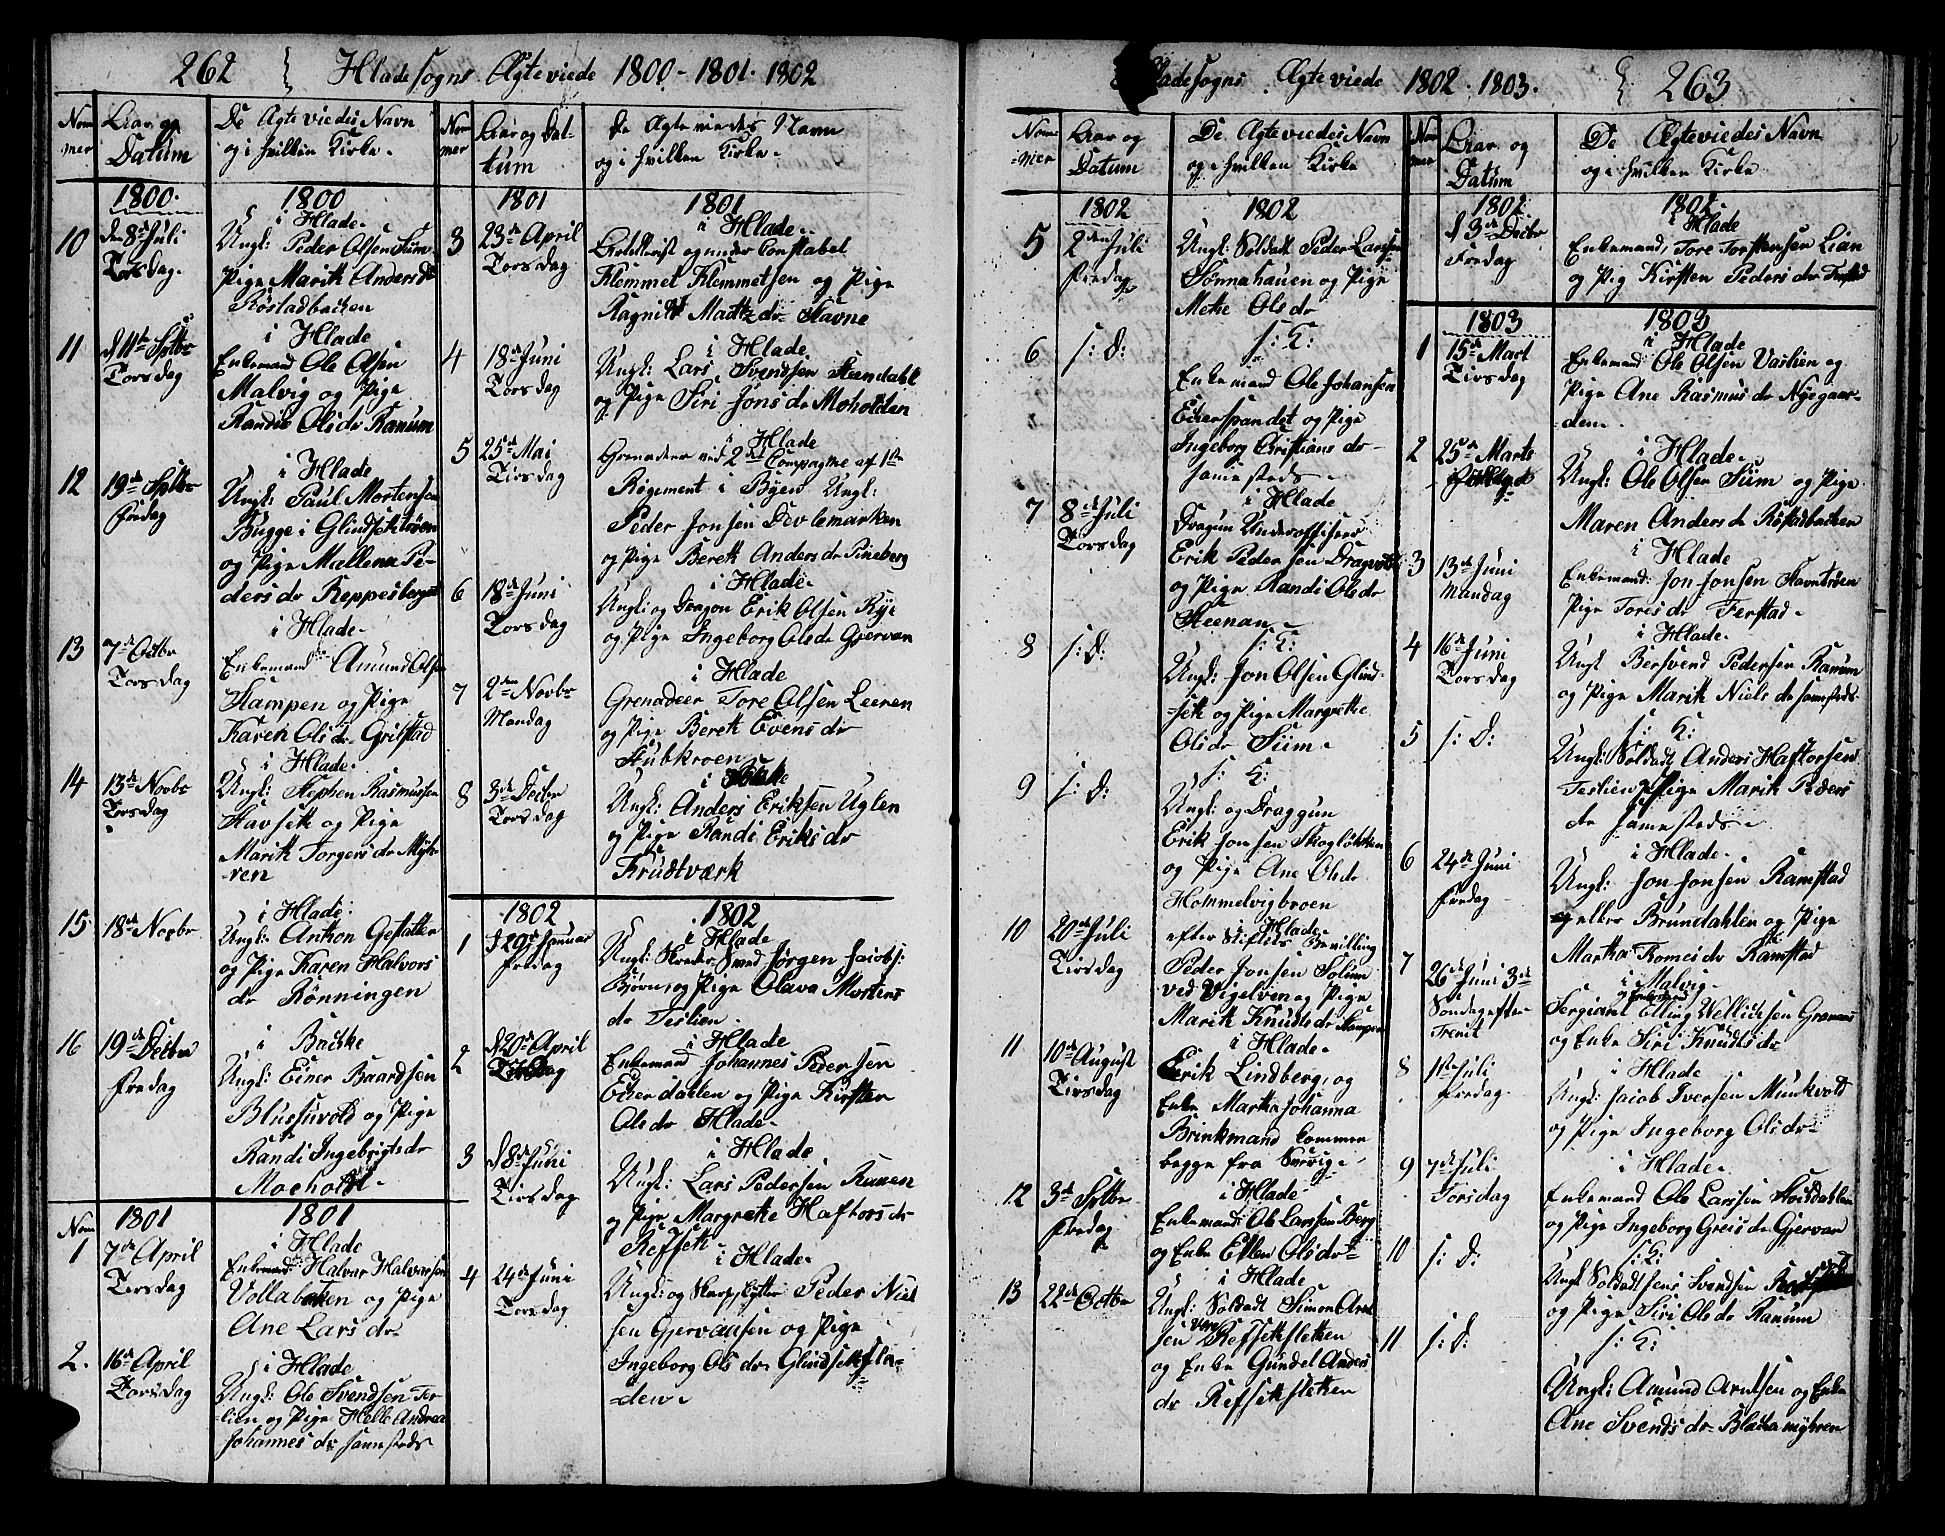 262 Hlade sogns Ægteviede 1800 - 1801 - 1802
Nom
mer
Aar og
Datum
De Ægteviedes Navn
og i hvilken Kirke.
1800.
1800
10
den 8de Juli
Torsdag.
i Hlade.
Ungk: Peder Olsen Siim
Pige Marit Anders dr
Røstadbacken
11
d 11te Sptbr
Torsdag
i Hlade
Enkemand Ole Olsen
Malvig og Pige
Randie Ols dr Ranum
12
19de Sptbr
Fredag
i Hlade
Ungk: Paul Mortensen
Bugge i Glindsetstrøen
og Pige Mallena Pe-
ders dr Reppesberget
13
7de Octbr
Torsdag
i Hlade.
Enkemand Amund Olsen
Stampen og Pige
Karen Ols dr Grilstad
14
13de Novbr
Torsdag
i Hlade.
Ungk: Stephen Rasmussen
Havseth og Pige
Marit Torgers dr Myh-
ren
15
18de Novbr
i Hlade.
Ungk: Anton Gestatter
og Pige Karen Halvors
dr Rönningen
16
19de Decbr
Fredag
i Bratske
Ungk: Einer Baardsen
Blussuvold og Pige
Randi Ingebrigts dr
Moeholdt.
Nom
1801
1801
1
7de April
Torsdag
i Hlade
Enkemand Halvar Halvarsen
Vollabakken og Pige
Ane Lars dr
2.
16de April
Torsdag
i Hlade
Ungk: Ole Svendsen Ter-
lien og Pige Helle Andrea
Johannes dr sammesteds
Nom
mer
Aar og Da-
tum
De Ægteviedes Navn
og i hvilken Kirke.
1801
1801
3
23de April
Torsdag
i Hlade.
Artillerist og under Constabel
Klemmet Klemmetsen og Pige
Ragnild Madtz dr Stavne
4
18de Juni
Torsdag
i Hlade
Ungk: Lars Svendsen Steendahl
og Pige Siri Jons dr Moholdan
5
25de Mai
Tirsdag
i Hlade
Grenadeer ved 2det Compagnie af 1ste
Regement i Byen Ungk:
Peder Jonsen Devlemarken
og Pige Berett Anders dr Pineberg
6
18de Juni
Torsdag
i Hlade.
Ungk: og Dragon Erik Olsen Rye
og Pige Ingeborg Ols dr Gjervan
7
2den Novbr
Mandag
i Hlade
Grenadeer Tore Olsen Leeren
og Pige Berett Evens dr
Stubkroen
8
3de Decbr
Torsdag
i Hlade
Ungk: Anders Eriksen Uglen
og Pige Randi Eriks dr
Krudtværk
1802
1802
1
d 29de Januar
Fredag
i Hlade
Ungk: Jørgen Jacobs:
Bjørn, og Pige Olava Mortens
dr Teslien.
2
d 20de April
Tirsdag
i Hlade
Enkemand Johannes Pedersen
Eckerdahlen og Pige Kirsten
Ols dr Hlade.
3
d 8de Juni
Tirsdag
i Hlade
Ungk: Lars Pedersen Runen
og Pige Margrethe Haftors dr
Refset.
4
24de Juni
Torsdag
i Hlade.
Ungk: og Skarpskytter Peder Niel
sen Gjervansen og Pige
Ingeborg Ols dr Glindsetsla-
den.
Hlade sogns Ægteviede 1802 . 1803. 263
Nom
mer
Aar og
Datum
De Ægteviedes Navn
og i hvilken Kirke
1802
1802
5
2den Juli
Fredag
i Hlade
Ungk: Soldadt Peder Larssen
Sönnahauen og Pige
Mette Ols dr
6
s: D:
s: K:
Enkemand Ole Johansen
Eckerspandet og Pige
Ingeborg Cristians dr
sammesteds
7
8de Juli
Torsdag
i Hlade
Dragun Underofficeer
Erik Pedersen Dragvold
og Pige Randi Ols dr
Steenan.
8
s: D:
s: K:
Ungk: Jon Olsen Glind-
set og Pige Margrethe
Ols dr Siim
9
s: D:
s: K:
Ungk: og Draggun
Erik Jonsen Skogløkken
og Pige Ane Ols dr
Hommelvigbroen
10
20de Juli
Tirsdag
i Hlade
efter Stiftets Bevilling
Peder Jonsen Solum
ved Vigelven og Pige
Marit Knuds dr Stampen
11
10de August
Tirsdag
i Hlade.
Erik Lindberg, og
Enke Martha Johanna
Brinkmand kommen
begge fra Sverige.
12
3de Sptbr
Fredag
i Hlade
Enkemand Ole Larssen Berg
og Enke Ellen Ols dr
13
22de Octbr
i Hlade
Ungk: Soldadt Simon Arnt
sen Refsetsletten
og Enke Gundel Anders
dr Refsetsletten
Nom
mer
Aar og
Datum
De Ægteviedes Navn
og i hvilken Kirke
1802
1802
d 3de Decbr
Fredag
i Hlade
Enkemand, Tore Torstensen Lian
og Pig Kirsten Peders dr Ferstad
1803
1803
1
15de Mart
Tirsdag
i Hlade
Enkemand Ole Olsen Vaslien og
Pige Ane Rasmus dr Nyegaar-
den.
2
25de Marts
i Hlade.
Ungk: Ole Olsen Siim og Pige
Maren Anders dr Röstadbacken
3
13de Juni
Mandag
i Hlade
Enkemand: Jon Jonsen Stavnetrøen
Pige Toris dr Ferstad.
4
16de Juni
Torsdag
i Hlade.
Ungk Bersvend Pedersen Ranum
og Pige Marit Niels dr sammesteds
5
s: D:
s: K:
Ungk: Soldadt Anders Haftorsen
Teslien Pige Marit Peders
dr sammesteds
6
24de Juni
Fredag
i Hlade.
Ungk: Jon Jonsen Ramstad
eller Brundahlen og Pige
Martha Tomes dr Ramstad
7
26de Juni 3de
Søndag efter
Trenit
i Malvig.
Enkemand
Sergiant Elling Wellichsen
og Enke Siri Knuds dr
8
1ste Juli
Fredag.
i Hlade
Ungk: Jacob Iversen Munkvold
og Pige Ingeborg Ols dr
9
7de Juli
Torsdag
i Hlade.
Enkemand Ole Larssen Stoudahlen
og Pige Ingeborg Greis dr Gjervan
10
s: D:
s: K:
Ungk Soldadt Jens Svendsen
og Pige Siri Ols dr Ranum
11
s: D:
s: K:
Ungk: Amund Arntsen og Enke
Ane Svends dr Blakamyhren